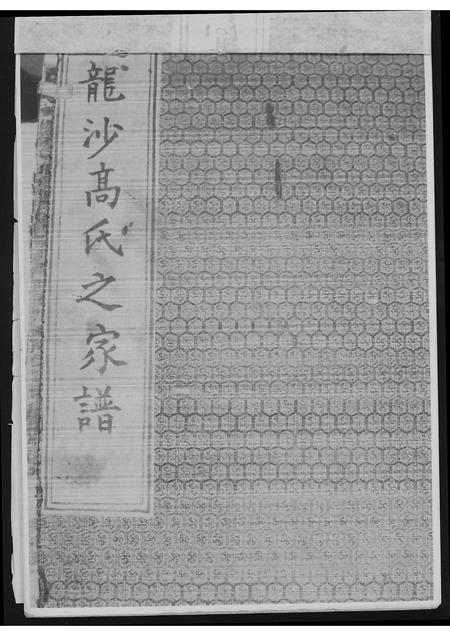 龍沙髙氏之家譜